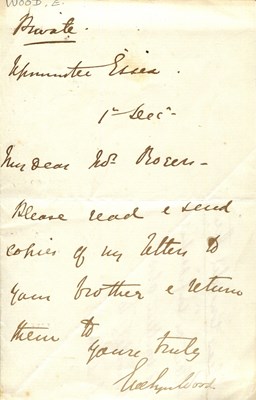 WOOD. E.
Private.
Upminster Essex.
1st Decr
My dear Mr. Rogers -
Please read & send
copies of my letters to
your brother & return
them to
yours truly
Evelyn Wood